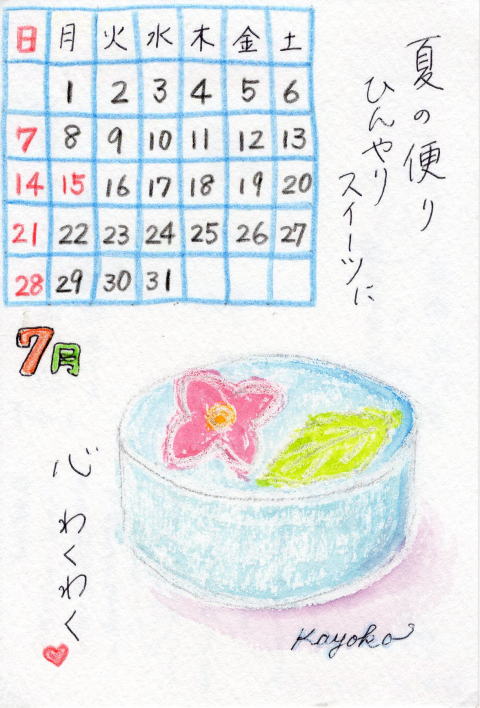 日 月 火 水 木 金 土
1 2 3 4 5 6
7 8 9 10 11 12 13
14 15 16 17 18 19 20
21 22 23 24 25 26 27
28 29 30 31
夏の便り
ひんやり
スイーツに
7月
心わくわく
Kayoko